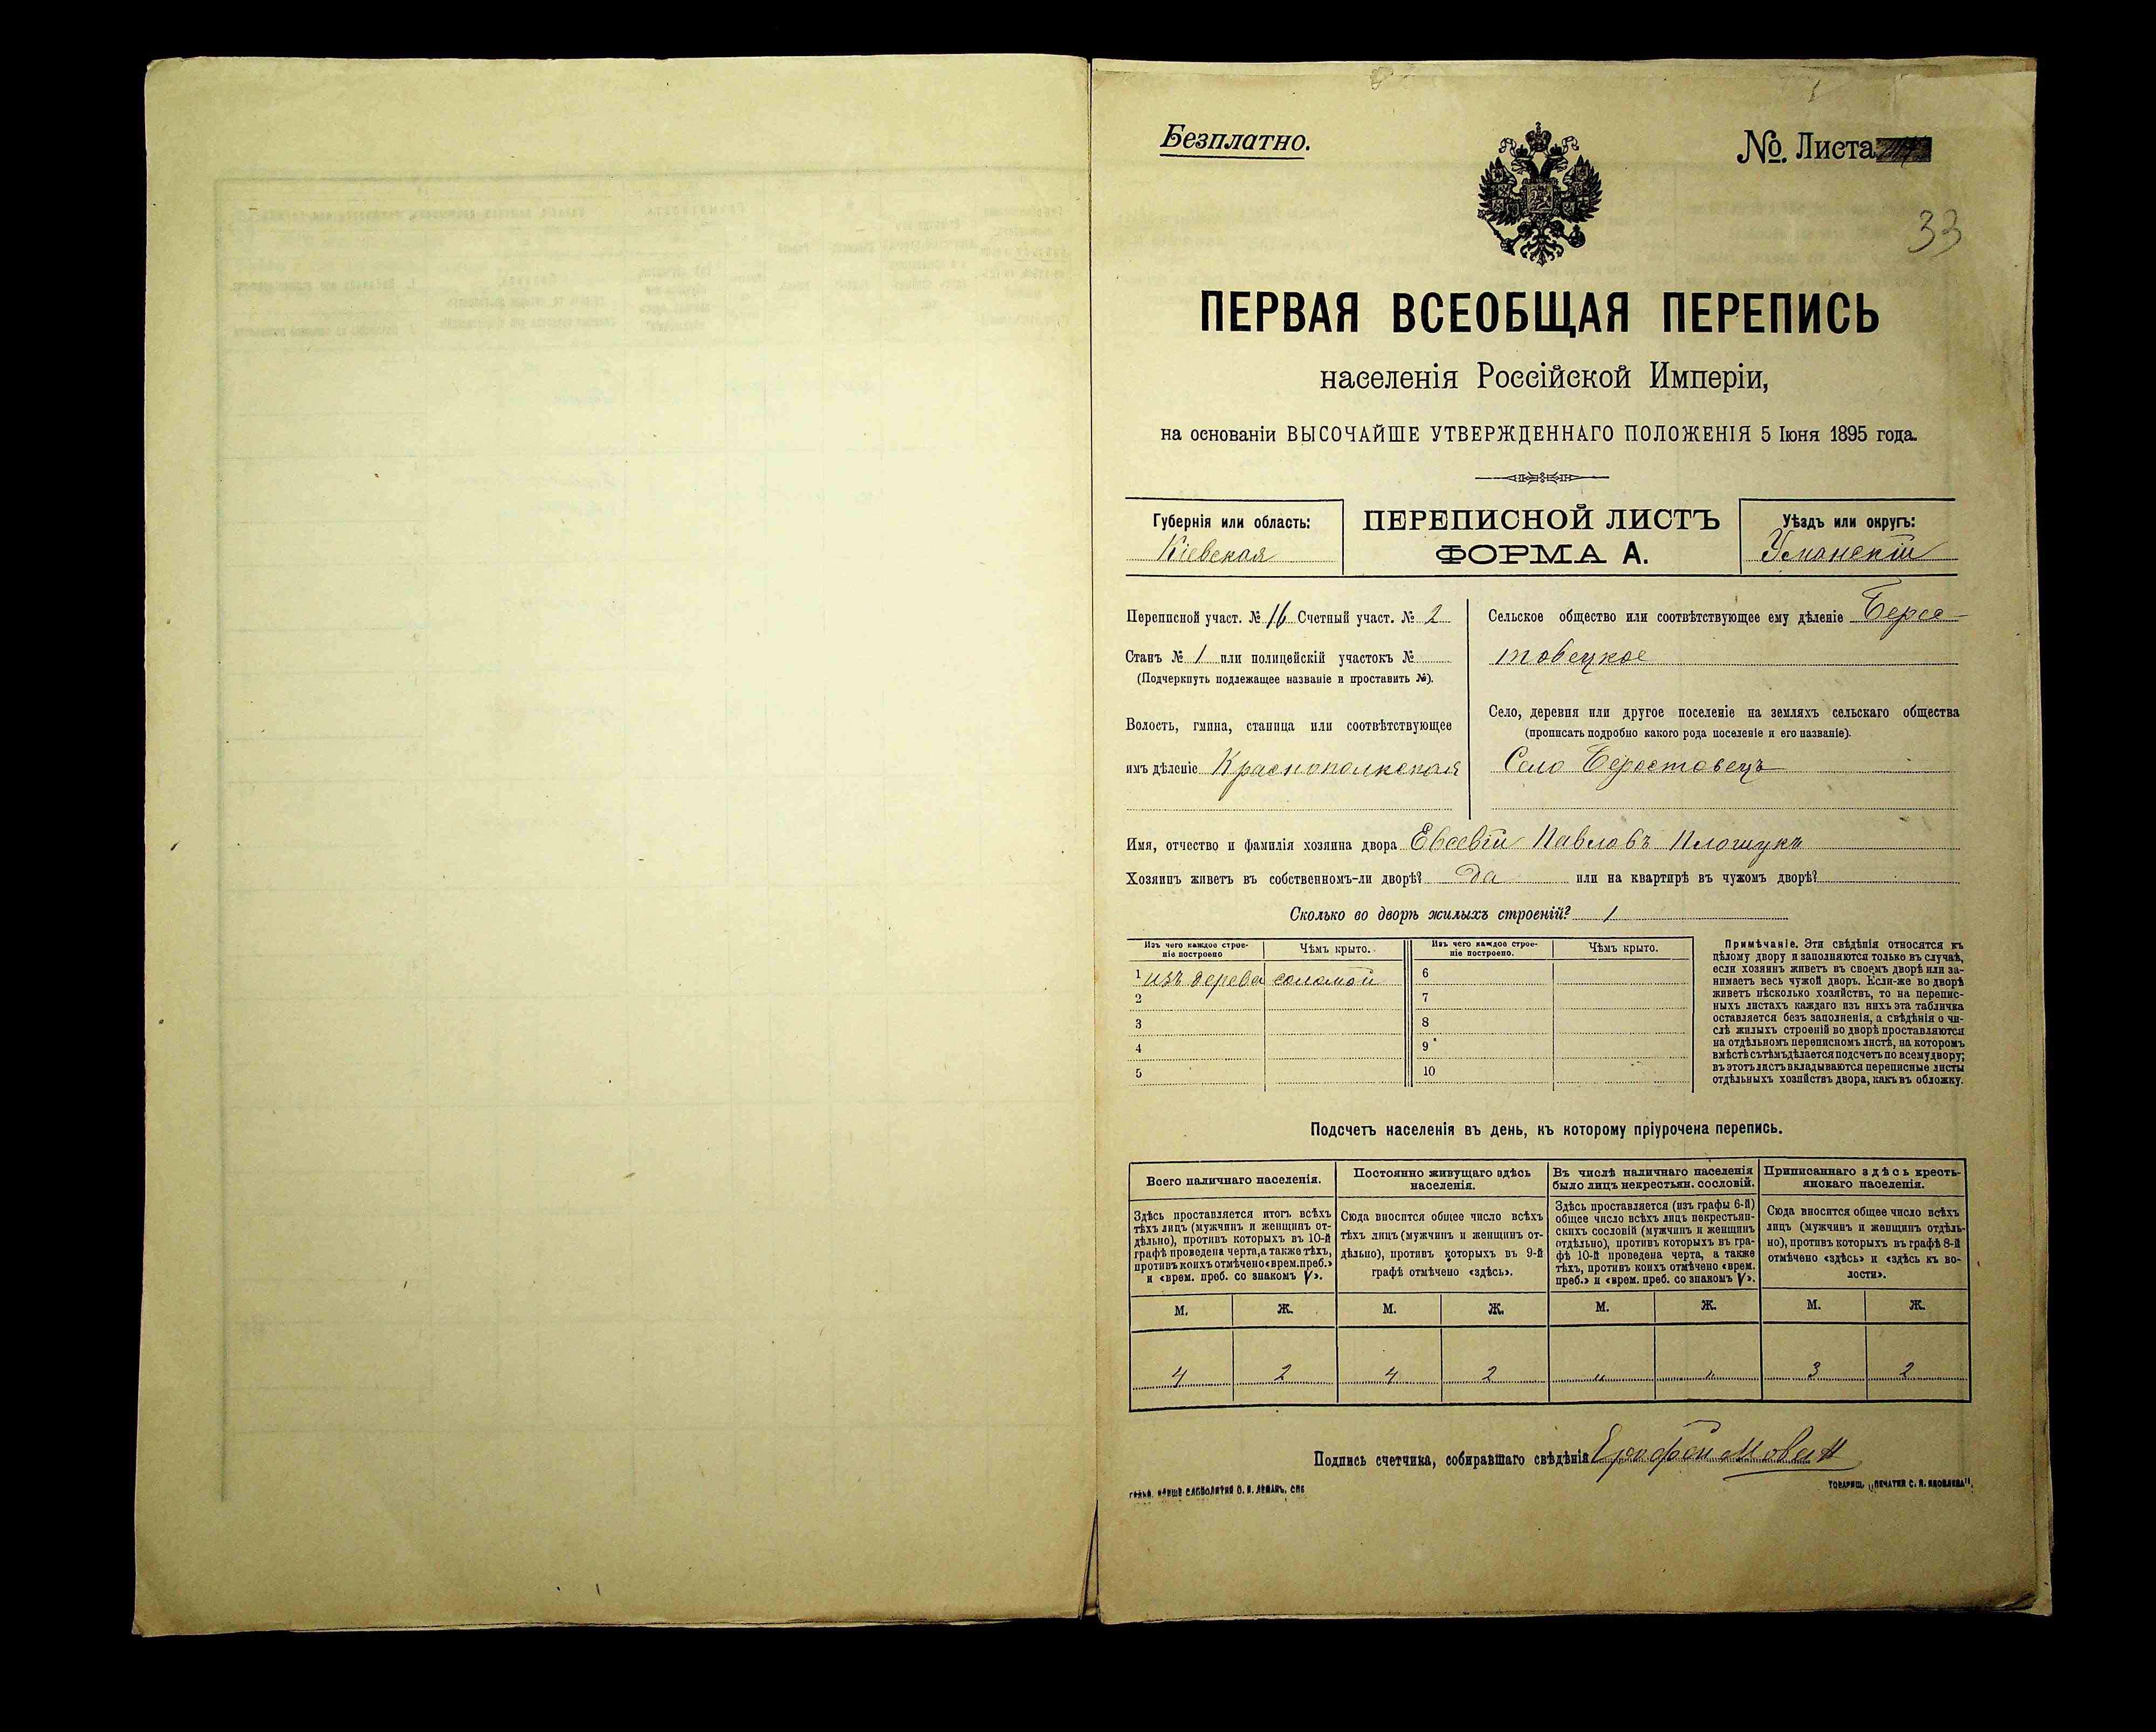 Безплатно.
No. Листа
33
ПЕРВАЯ ВСЕОБЩАЯ ПЕРЕПИСЬ
населенія Россійской Имперіи,
на основаніи ВЫСОЧАЙШЕ УТВЕРЖДЕННАГО ПОЛОЖЕНІЯ 5 Іюня 1895 года.
Губернія или область:
Кіевская
ПЕРЕПИСНОЙ ЛИСТЪ
ФОРМА А.
Уѣздъ или округъ:
Уманскій
Переписной участ. № 16 Счетный участ. № 2
Станъ № 1 или полицейскій участокъ №
(Подчеркнуть подлежащее названіе и проставить №).
Волость, гмина, станица или соотвѣтствующее
имъ дѣленіе Краснопольская
Сельское общество или соотвѣтствующее ему дѣленіе Берес-
товецкое
Село, деревня или другое поселеніе на земляхъ сельскаго общества
(прописать подробно какого рода поселеніе и его названіе).
Село Берестовецъ
Имя, отчество и фамилія хозяина двора Евсевій Павловъ
Хозяинъ живетъ въ собственномъ-ли дворѣ? Да или на квартирѣ въ чужомъ дворѣ?
Сколько во дворѣ жилыхъ строеній? 1
Изъ чего каждое строе-
ніе построено
Чѣмъ крыто.
Изъ чего каждое строе-
ніе построено.
Чѣмъ крыто.
1 изъ дерева соломой 6
2 7
3 8
4 9
5 10
Примѣчаніе. Эти свѣдѣнія относятся къ
цѣлому двору и заполняются только въ случаѣ,
если хозяинъ живетъ въ своемъ дворѣ или за-
нимаетъ весь чужой дворъ. Если-же во дворѣ
живетъ нѣсколько хозяйствъ, то на перепис-
ныхъ листахъ каждаго изъ нихъ эта табличка
оставляется безъ заполненія, а свѣдѣнія о чи-
слѣ жилыхъ строеній во дворѣ проставляются
на отдѣльномъ переписномъ листѣ, на которомъ
вмѣстѣ съ тѣмъ дѣлается подсчетъ по всему двору;
въ этотъ листъ вкладываются переписные листы
отдѣльныхъ хозяйствъ двора, какъ въ обложку.
Подсчетъ населенія въ день, къ которому пріурочена перепись.
Всего наличнаго населенія.
Постоянно живущаго здѣсь
населенія.
Въ числѣ наличнаго населенія
было лицъ некрестьян. сословій.
Приписаннаго здѣсь кресть-
янскаго населенія.
Здѣсь проставляется итогъ всѣхъ
тѣхъ лицъ (мужчинъ и женщинъ от-
дѣльно), противъ которыхъ въ 10-й
графѣ проведена черта, а также тѣхъ,
противъ коихъ отмѣчено «врем. преб.»
и «врем. преб. со знакомъ V».
Сюда вносится общее число всѣхъ
тѣхъ лицъ (мужчинъ и женщинъ от-
дѣльно), противъ которыхъ въ 9-й
графѣ отмѣчено «здѣсь».
Здѣсь проставляется (изъ графы 6-й)
общее число всѣхъ лицъ некрестьян-
скихъ сословій (мужчинъ и женщинъ
отдѣльно), противъ которыхъ въ гра-
фѣ 10-й проведена черта, а также
тѣхъ, противъ коихъ отмѣчено «врем.
преб.» и «врем. преб. со знакомъ V».
Сюда вносится общее число всѣхъ
лицъ (мужчинъ и женщинъ отдѣль-
но), противъ которыхъ въ графѣ 8-й
отмѣчено «здѣсь» и «здѣсь къ во-
лости».
М. Ж. М. Ж. М. Ж. М. Ж.
4 2 4 2 „ „ 3 2
Подпись счетчика, собиравшаго свѣдѣнія
ТОВАРИЩ. „ПЕЧАТНЯ С. П. ЯКОВЛЕВА".